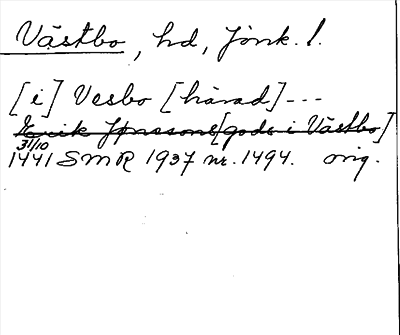 Västbo, hd, Jönk. l.
[i] Vesbo [härad] ---
Erik Jönssons [gods i Västbo]
31/10
1441 SMR 1937 nr. 1494. orig.